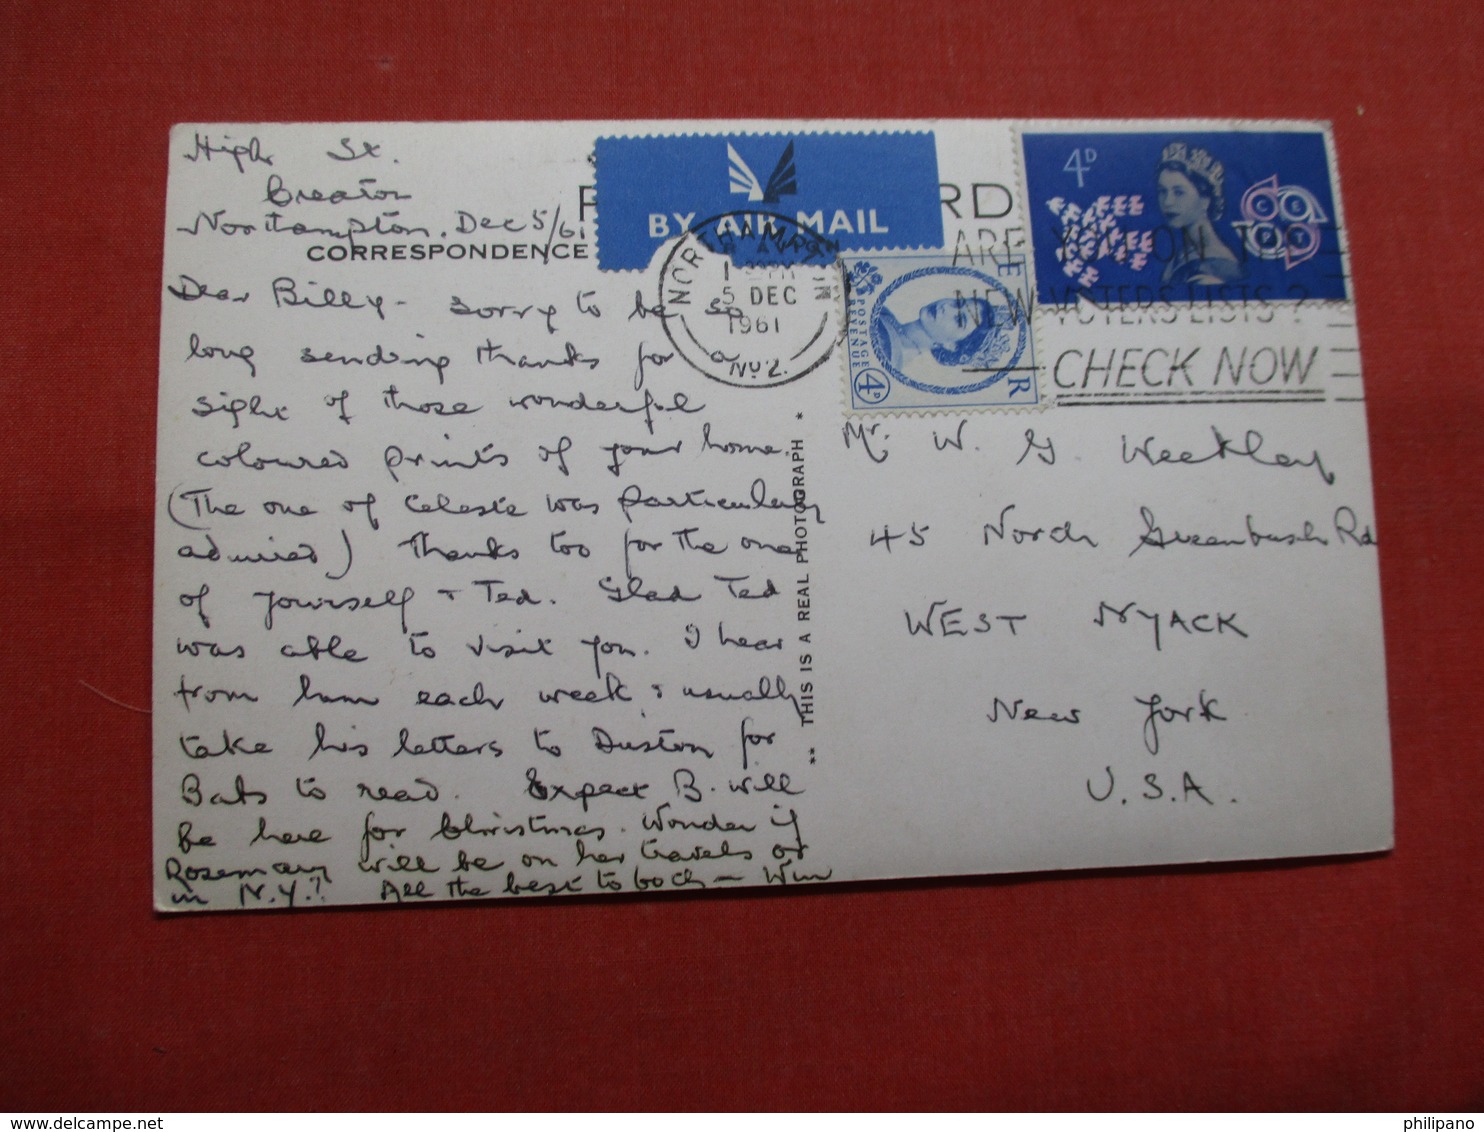 High St.
Creaton
Northampton, Dec 5/61
CORRESPONDENCE
BY AIR MAIL
RD
NORTHAMPTON
5 DEC
1961
No 2.
4D
CEPT
E R
POSTAGE REVENUE
4D
ARE YOU ON THE
NEW VOTERS LISTS?
CHECK NOW
Dear Billy - Sorry to be so
long sending thanks for a
sight of those wonderful
coloured prints of your home.
(The one of Celeste was particularly
admired) Thanks too for the one
of yourself + Ted. Glad Ted
was able to visit you. I hear
from him each week & usually
take his letters to Duston for
Babs to read. Expect B. will
be here for Christmas. Wonder if
Rosemary will be on her travels or
in N.Y.? All the best to both - Win
** THIS IS A REAL PHOTOGRAPH *
Mr. W. G. Weekley
45 North Greenbush Rd
WEST NYACK
New York
U.S.A.
philipano